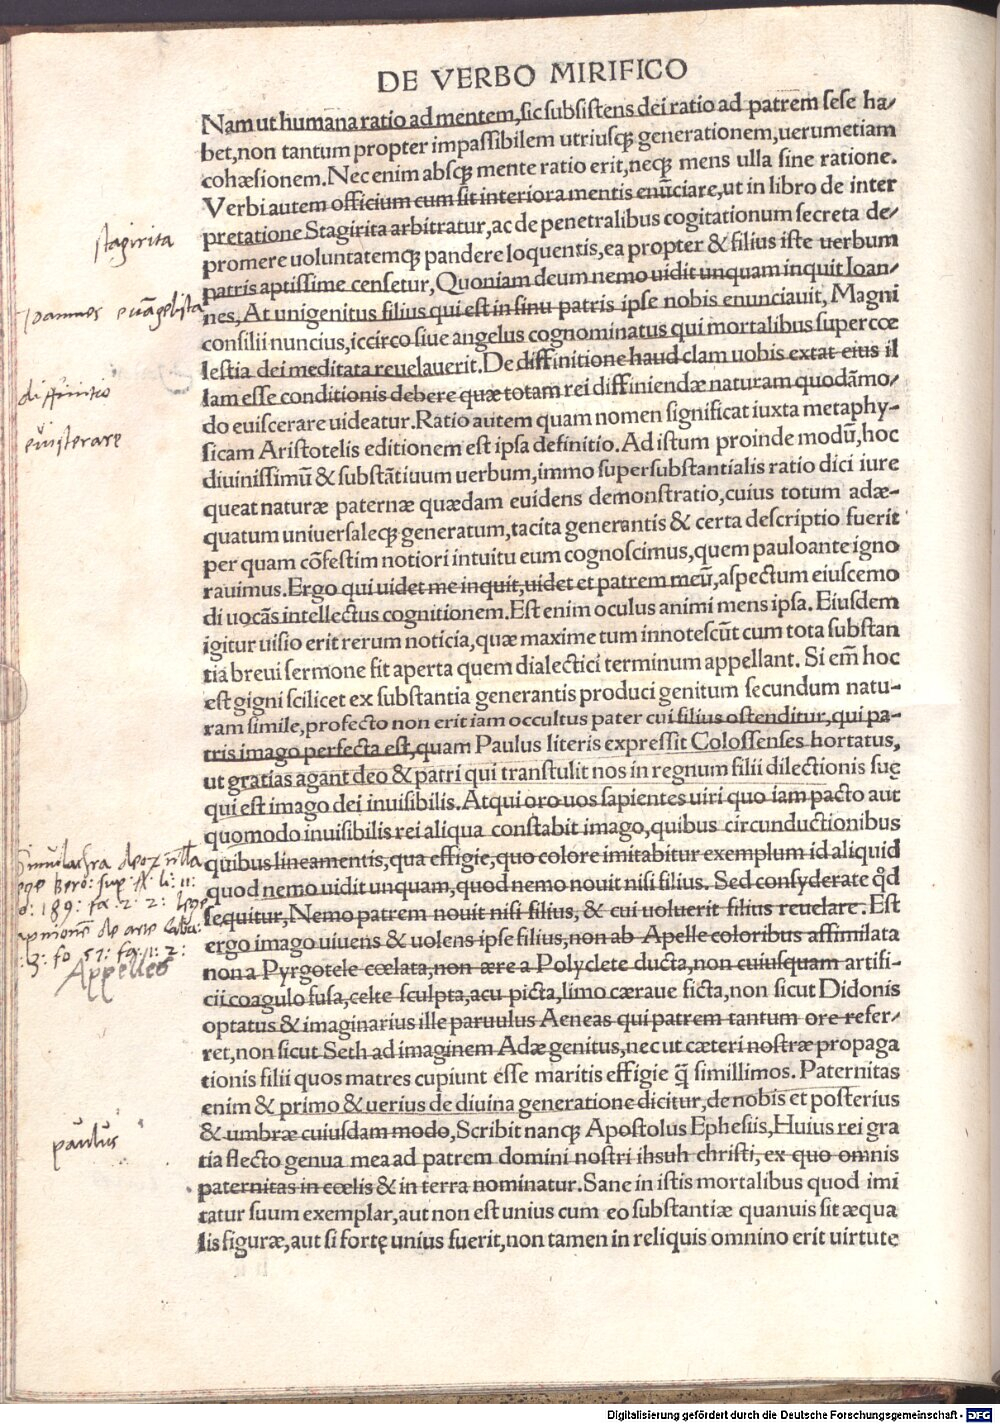 DE VERBO MIRIFICO
Nam ut humana ratio ad mentem, sic subsistens dei ratio ad patrem sese ha/
bet, non tantum propter impassibilem utriusq; generationem, uerumetiam
cohæsionem. Nec enim absq; mente ratio erit, neq; mens ulla sine ratione.
Verbi autem officium cum sit interiora mentis enūciare, ut in libro de inter
pretatione Stagirita arbitratur, ac de penetralibus cogitationum secreta de/
promere uoluntatemq; pandere loquentis, ea propter & filius iste uerbum
patris aptissime censetur, Quoniam deum nemo uidit unquam inquit Ioan/
nes, At unigenitus filius qui est in sinu patris ipse nobis enunciauit, Magni
consilii nuncius, iccirco siue angelus cognominatus qui mortalibus supercœ
lestia dei meditata reuelauerit. De diffinitione haud clam uobis extat eius il
lam esse conditionis debere quæ totam rei diffiniendæ naturam quodāmo/
do euiscerare uideatur. Ratio autem quam nomen significat iuxta metaphy-
sicam Aristotelis editionem est ipsa definitio. Ad istum proinde modū, hoc
diuinissimū & substātiuum uerbum, immo supersubstantialis ratio dici iure
queat naturæ paternæ quædam euidens demonstratio, cuius totum adæ-
quatum uniuersaleq; generatum, tacita generantis & certa descriptio fuerit
per quam cōfestim notiori intuitu eum cognoscimus, quem pauloante igno
rauimus. Ergo qui uidet me inquit, uidet et patrem meū, aspectum eiuscemo
di uocās intellectus cognitionem. Est enim oculus animi mens ipsa. Eiusdem
igitur uisio erit rerum noticia, quæ maxime tum innotescūt cum tota substan
tia breui sermone fit aperta quem dialectici terminum appellant. Si em̄ hoc
est gigni scilicet ex substantia generantis produci genitum secundum natu-
ram simile, profecto non erit iam occultus pater cui filius ostenditur, qui pa-
tris imago perfecta est, quam Paulus literis expressit Colossenses hortatus,
ut gratias agant deo & patri qui transtulit nos in regnum filii dilectionis suę
qui est imago dei inuisibilis. Atqui oro uos sapientes uiri quo iam pacto aut
quomodo inuisibilis rei aliqua constabit imago, quibus circunductionibus
quibus lineamentis, qua effigie, quo colore imitabitur exemplum id aliquid
quod nemo uidit unquam, quod nemo nouit nisi filius. Sed consyderate qd̄
sequitur, Nemo patrem nouit nisi filius, & cui uoluerit filius reuelare. Est
ergo imago uiuens & uolens ipse filius, non ab Apelle coloribus assimilata
non a Pyrgotele cœlata, non ære a Polyclete ducta, non cuiusquam artifi-
cii coagulo fusa, celte sculpta, acu picta, limo cæraue ficta, non sicut Didonis
optatus & imaginarius ille paruulus Aeneas qui patrem tantum ore refer/
ret, non sicut Seth ad imaginem Adæ genitus, nec ut cæteri nostræ propaga
tionis filii quos matres cupiunt esse maritis effigie q̄ simillimos. Paternitas
enim & primo & uerius de diuina generatione dicitur, de nobis et posterius
& umbræ cuiusdam modo, Scribit nanq; Apostolus Ephesiis, Huius rei gra
tia flecto genua mea ad patrem domini nostri ihsuh christi, ex quo omnis
paternitas in cœlis & in terra nominatur. Sane in istis mortalibus quod imi
tatur suum exemplar, aut non est unius cum eo substantiæ quanuis sit æqua
lis figuræ, aut si fortę unius fuerit, non tamen in reliquis omnino erit uirtute
stagirita
Ioannes euāgelista
diffinitio
euisterare
Simulachra
Appelles
paulus
Digitalisierung gefördert durch die Deutsche Forschungsgemeinschaft - DFG